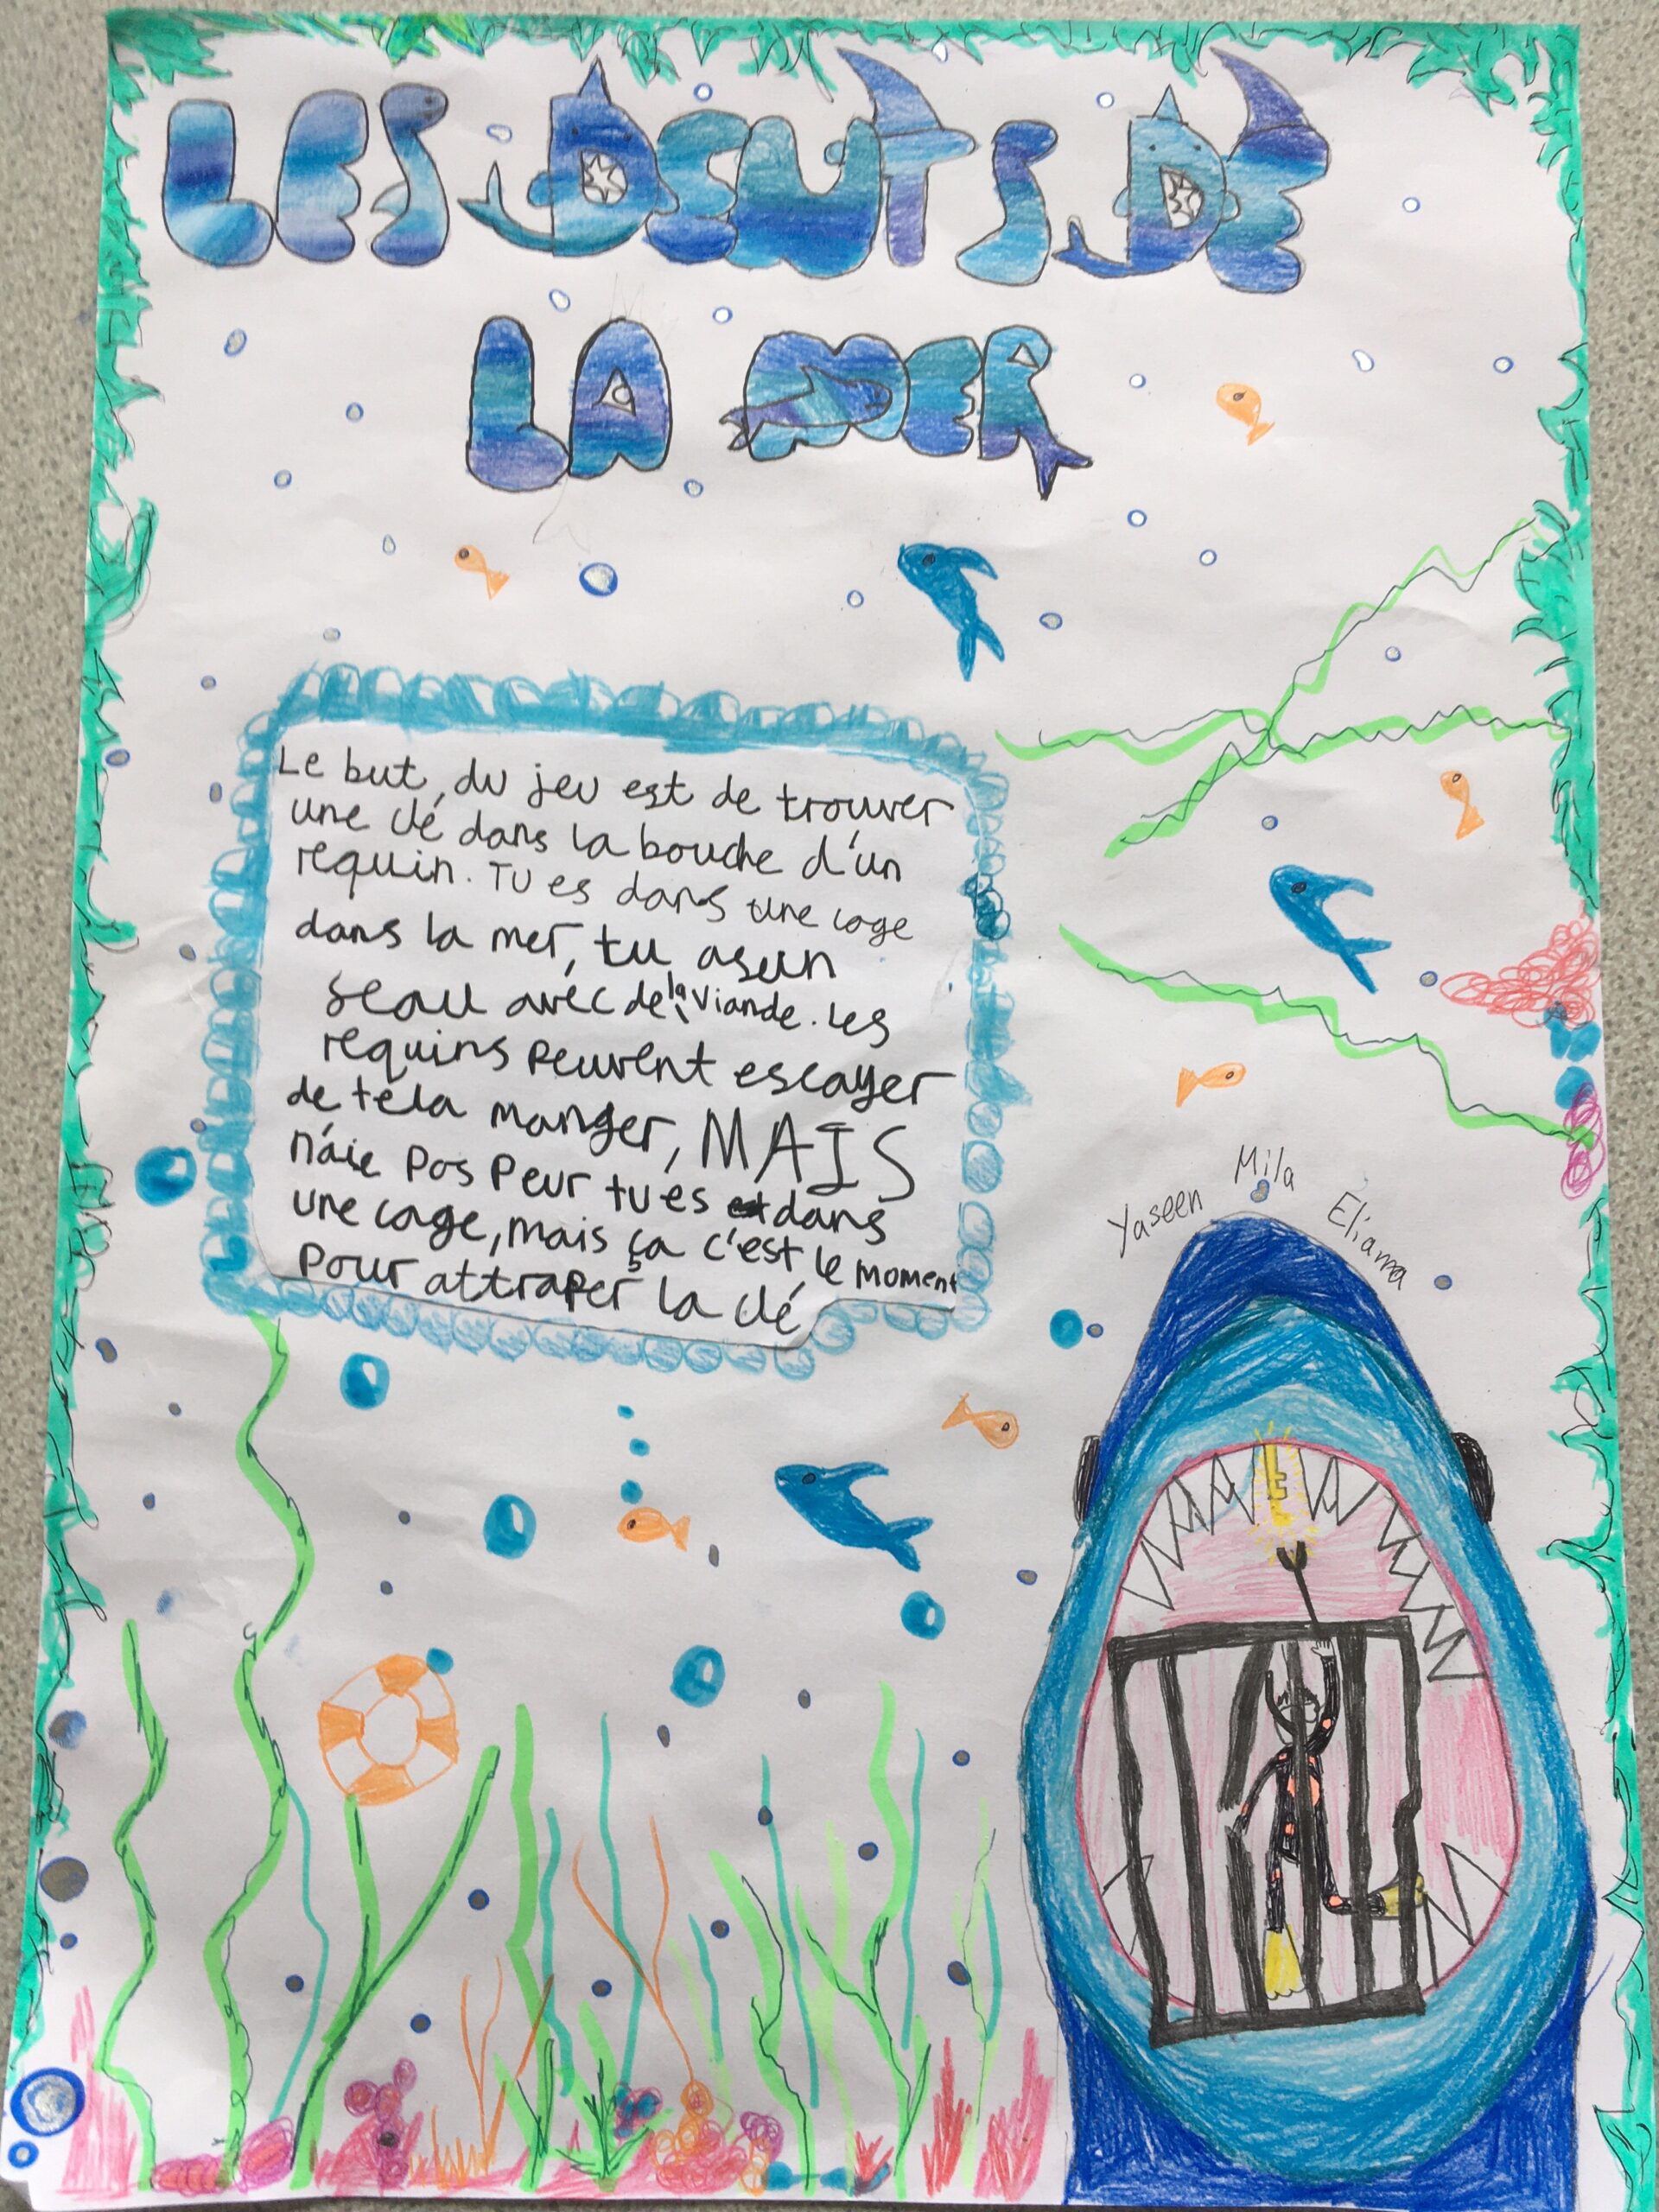 LES DENTS DE
LA MER
Le but, du jeu est de trouver
une clé dans la bouche d'un
requin. TU es dans une cage
dans la mer, tu as un
seau avec de la viande. Les
requins peuvent escayer
de te la manger, MAIS
n'áie pas peur tu es dans
une cage, mais ça c'est le moment
pour attraper la clé
Yaseen Mila Elianna